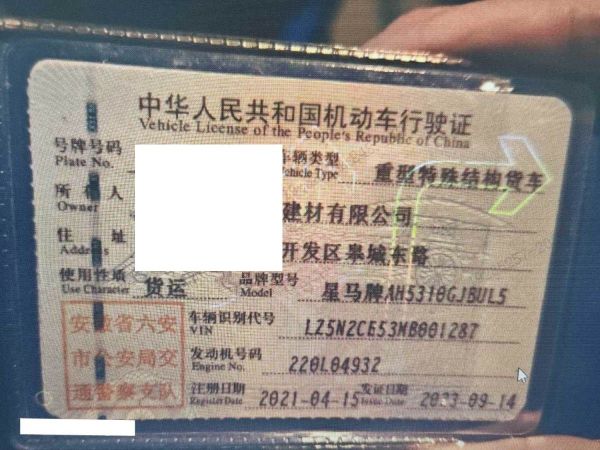 中华人民共和国机动车行驶证
Vehicle License of the People's Republic of China
号牌号码 车辆类型 重型特殊结构货车
Plate No. Vehicle Type
所有人 建材有限公司
Owner
住址 开发区皋城东路
Address
使用性质 货运 品牌型号 星马牌AH5310GJBUL5
Use Character Model
安徽省六安 车辆识别代号 LZ5N2CE53MB001287
VIN
市公安局交 发动机号码 220L04932
Engine No.
通警察支队 注册日期 2021-04-15 发证日期 2023-09-14
Register Date Issue Date